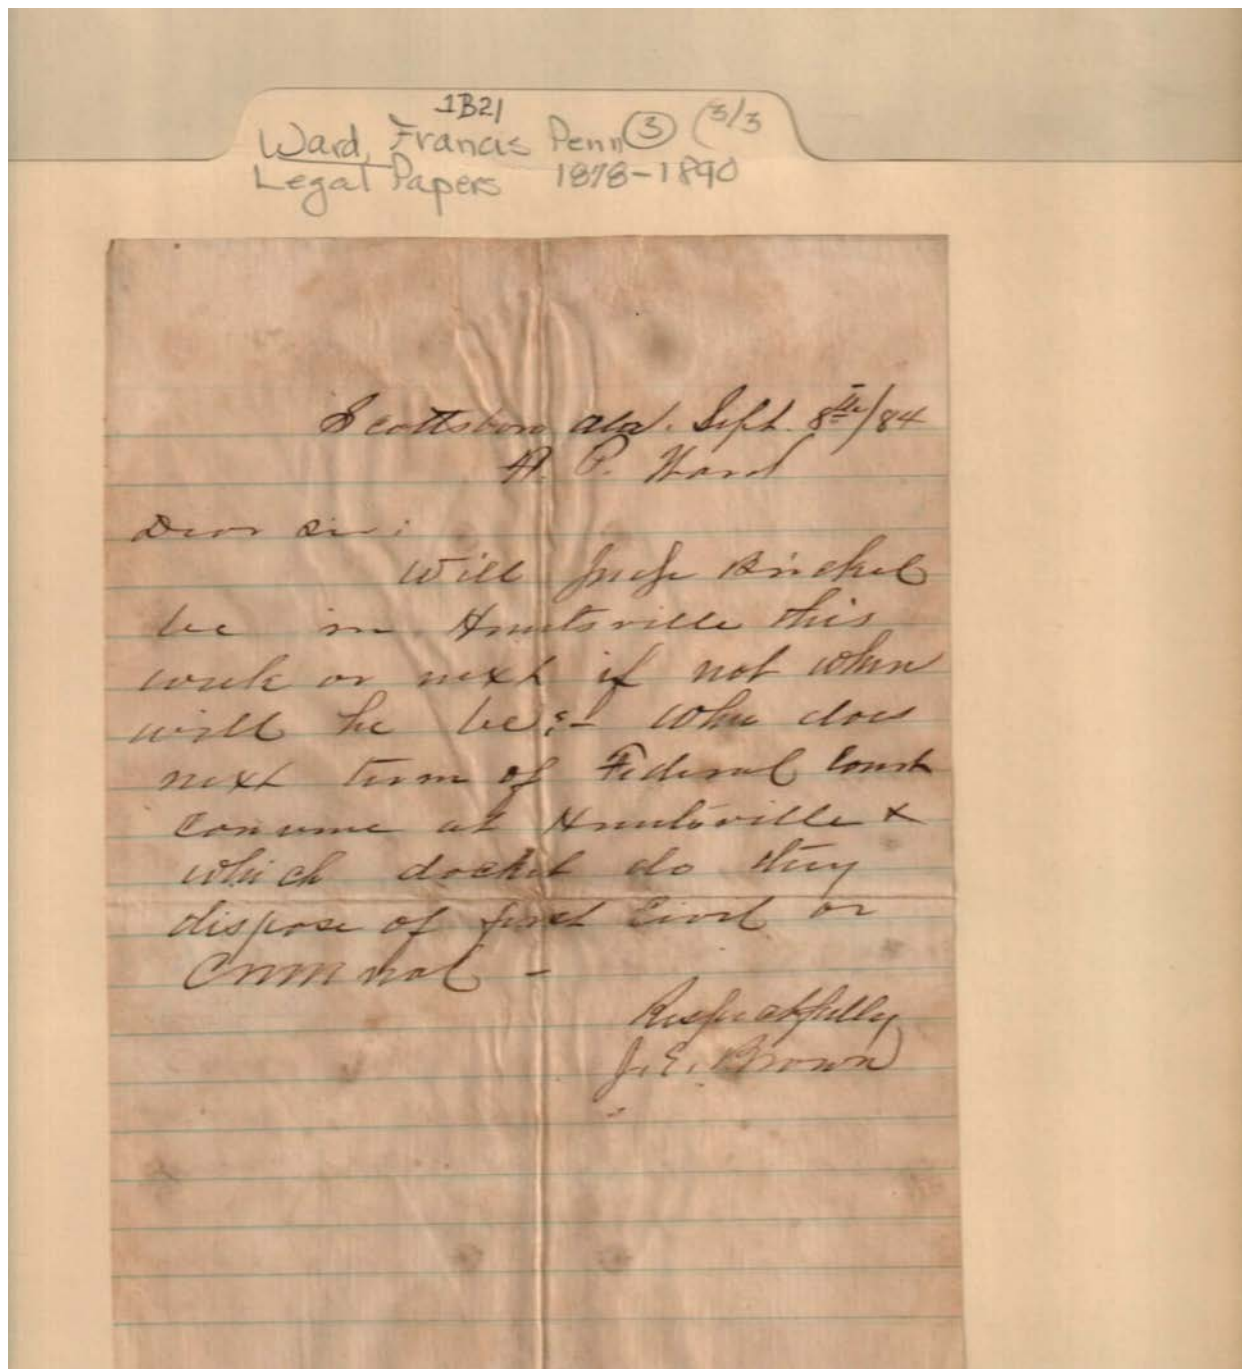 1B21
Ward, Francis Penn ③ (3/3
Legal Papers 1878-1890
Scottsboro Ala. Sept. 8th/84
P. Ward
Dear Sir:
Will Judge Brickel
be in Huntsville this
week or next if not when
will he be :- When does
next term of Federal Court
convene at Huntsville &
which docket do they
dispose of first Civil or
Criminal -
Respectfully
J. E. Brown